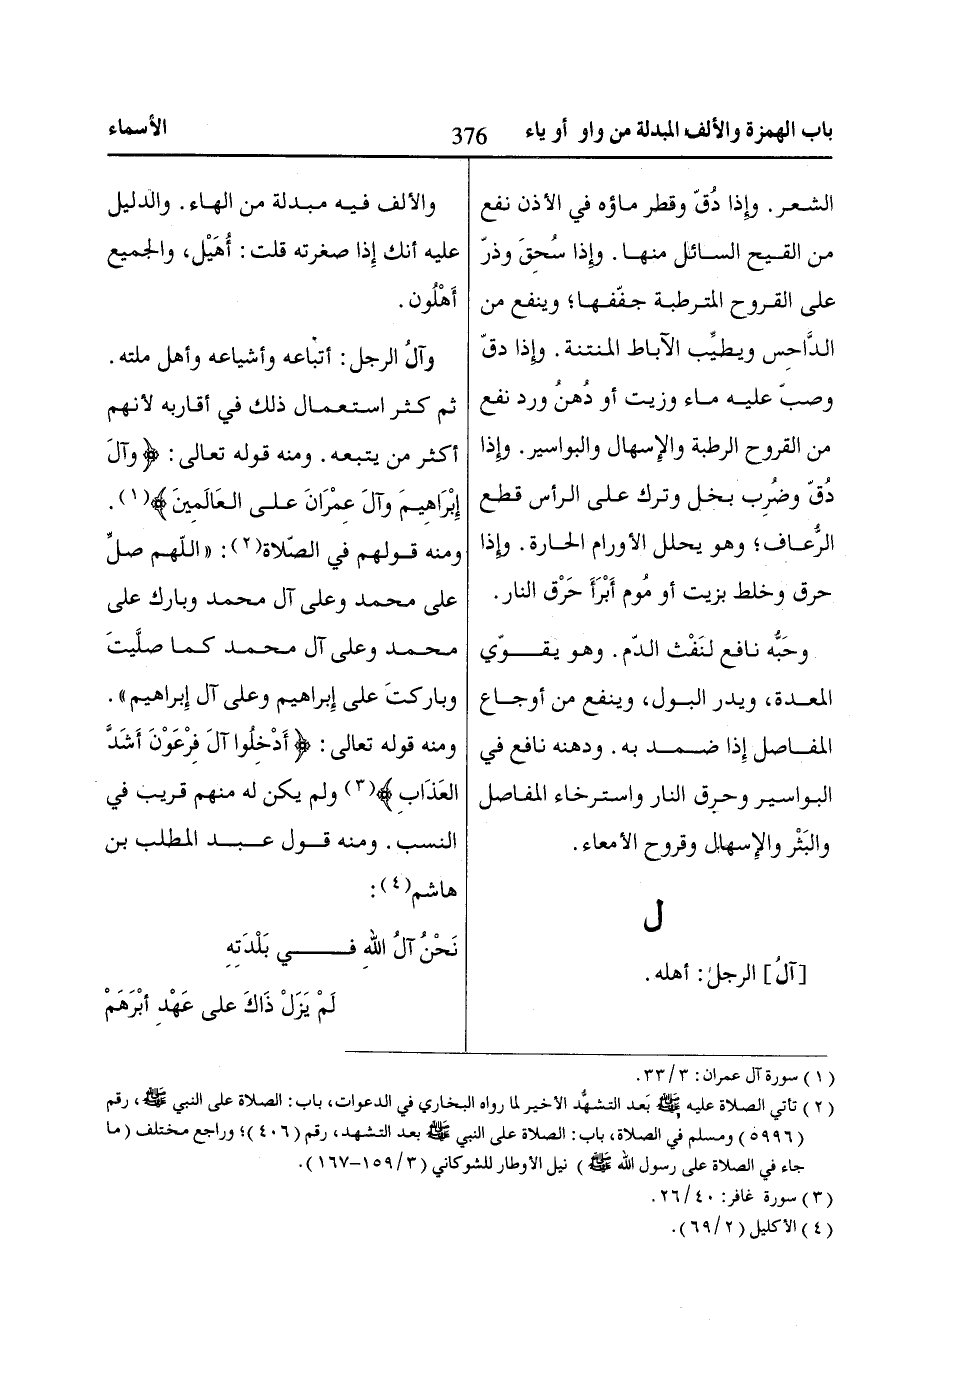 باب الهمزة والألف المبدلة من واو أو ياء
376
الأسماء
الشعر. وإذا دُقّ وقطر ماؤه في الأذن نفع
من القيح السائل منها. وإذا سُحِق وذرّ
على القروح المترطبة جفّفها؛ وينفع من
الدَّاحِس ويطيِّب الآباط المنتنة. وإذا دقّ
وصبّ عليه ماء وزيت أو دُهنُ ورد نفع
من القروح الرطبة والإسهال والبواسير. وإذا
دُقّ وضُرِب بخل وترك على الرأس قطع
الرُّعاف؛ وهو يحلل الأورام الحارة. وإذا
حرق وخلط بزيت أو مُوم أَبْرَأَ حَرْق النار.
وحَبُّه نافع لنَفْث الدّم. وهو يقوّي
المعدة، ويدر البول، وينفع من أوجاع
المفاصل إذا ضمد به. ودهنه نافع في
البواسير وحرق النار واسترخاء المفاصل
والبَثْر والإسهال وقروح الأمعاء.
ل
[آلُ] الرجلِ: أهله.
والألف فيه مبدلة من الهاء. والدليل
عليه أنك إذا صغرته قلت: أُهَيْل، والجميع
أَهْلُون.
وآلُ الرجل: أتْباعه وأشياعه وأهل ملته.
ثم كثر استعمال ذلك في أقاربه لأنهم
أكثر من يتبعه. ومنه قوله تعالى: ﴿وآلَ
إِبْرَاهِيمَ وآلَ عِمْرَانَ على العَالَمِينَ﴾(١).
ومنه قولهم في الصّلاة(٢): «اللّهم صلِّ
على محمد وعلى آل محمد وبارك على
محمد وعلى آل محمد كما صلَّيتَ
وباركتَ على إبراهيم وعلى آل إبراهيم».
ومنه قوله تعالى: ﴿أَدْخِلُوا آلَ فِرْعَوْنَ أَشَدَّ
العَذَابِ﴾(٣) ولم يكن له منهم قريب في
النسب. ومنه قول عبد المطلب بن
هاشم(٤):
نَحْنُ آلُ اللهِ فـي بَلْدَتِهِ
لَمْ يَزَلْ ذَاكَ على عَهْدِ أبْرَهَمْ
(١) سورة آل عمران: ٣/٣٣.
(٢) تأتي الصلاة عليه ﷺ بَعد التشهُّد الأخير لما رواه البخاري في الدعوات، باب: الصلاة على النبي ﷺ، رقم
(٥٩٩٦) ومسلم في الصلاة، باب: الصلاة على النبي ﷺ بعد التشهد، رقم (٤٠٦)؛ وراجع مختلف (ما
جاء في الصلاة على رسول الله ﷺ) نيل الأوطار للشوكاني (٣/١٥٩-١٦٧).
(٣) سورة غافر: ٤٠/٢٦.
(٤) الأكليل (٢/٦٩).